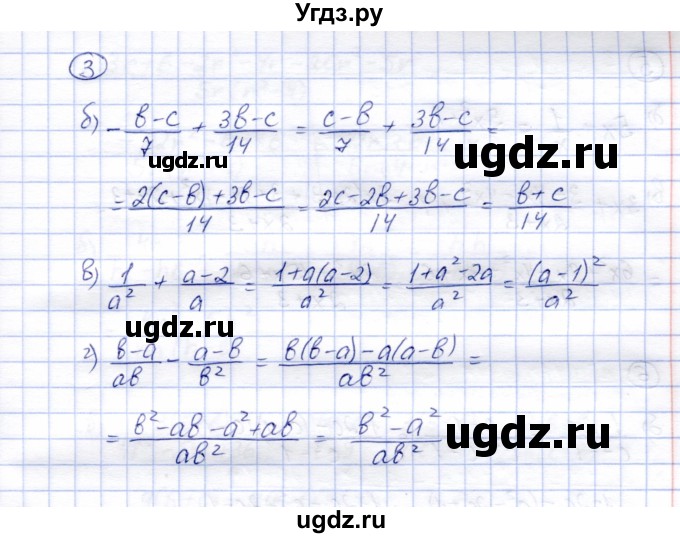 Угдз.ру
3
б) -(в-с)/7 + (3в-с)/14 = (с-в)/7 + (3в-с)/14 =
ugdz.ru
= (2(с-в)+3в-с)/14 = (2с-2в+3в-с)/14 = (в+с)/14
ugdz.ru
в) 1/a² + (a-2)/a = (1+a(a-2))/a² = (1+a²-2a)/a² = (a-1)²/a²
ugdz.ru
г) (в-a)/aв - (a-в)/в² = (в(в-a)-a(a-в))/aв² =
= (в²-aв-a²+aв)/aв² = (в²-a²)/aв²
ugdz.ru
ugdz.ru